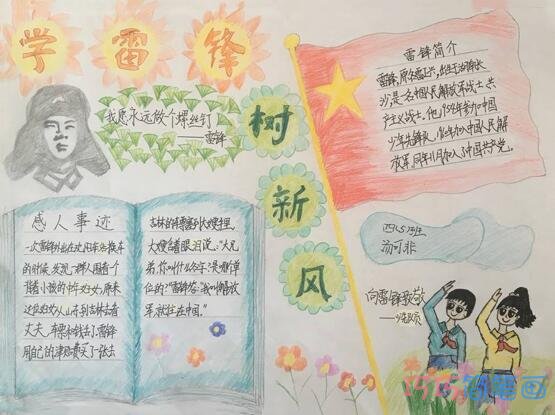 学雷锋
树新风
我愿永远做个螺丝钉
——雷锋
雷锋简介
雷锋,原名雷正兴,出生于湖南长
沙,是一名中国人民解放军战士,共
产主义战士。他,1954年加入中国
少年先锋队,1960年加入中国人民解
放军,同年11月加入了中国共产党。
感人事迹
一次雷锋外出在沈阳车站换车
的时候,发现一群人围着一个
背着小孩的中年妇女,原来
这位妇女从山东到吉林去看
丈夫,车票和钱丢了。雷锋
用自己的津贴费买了一张去
吉林的火车票塞到大嫂手里,
大嫂含着眼泪说:“大兄
弟,你叫什么名字,是哪个单
位的?”雷锋说:“我叫解放
军,就住在中国。”
四(5)班
汤可非
向雷锋致敬
——少先队员